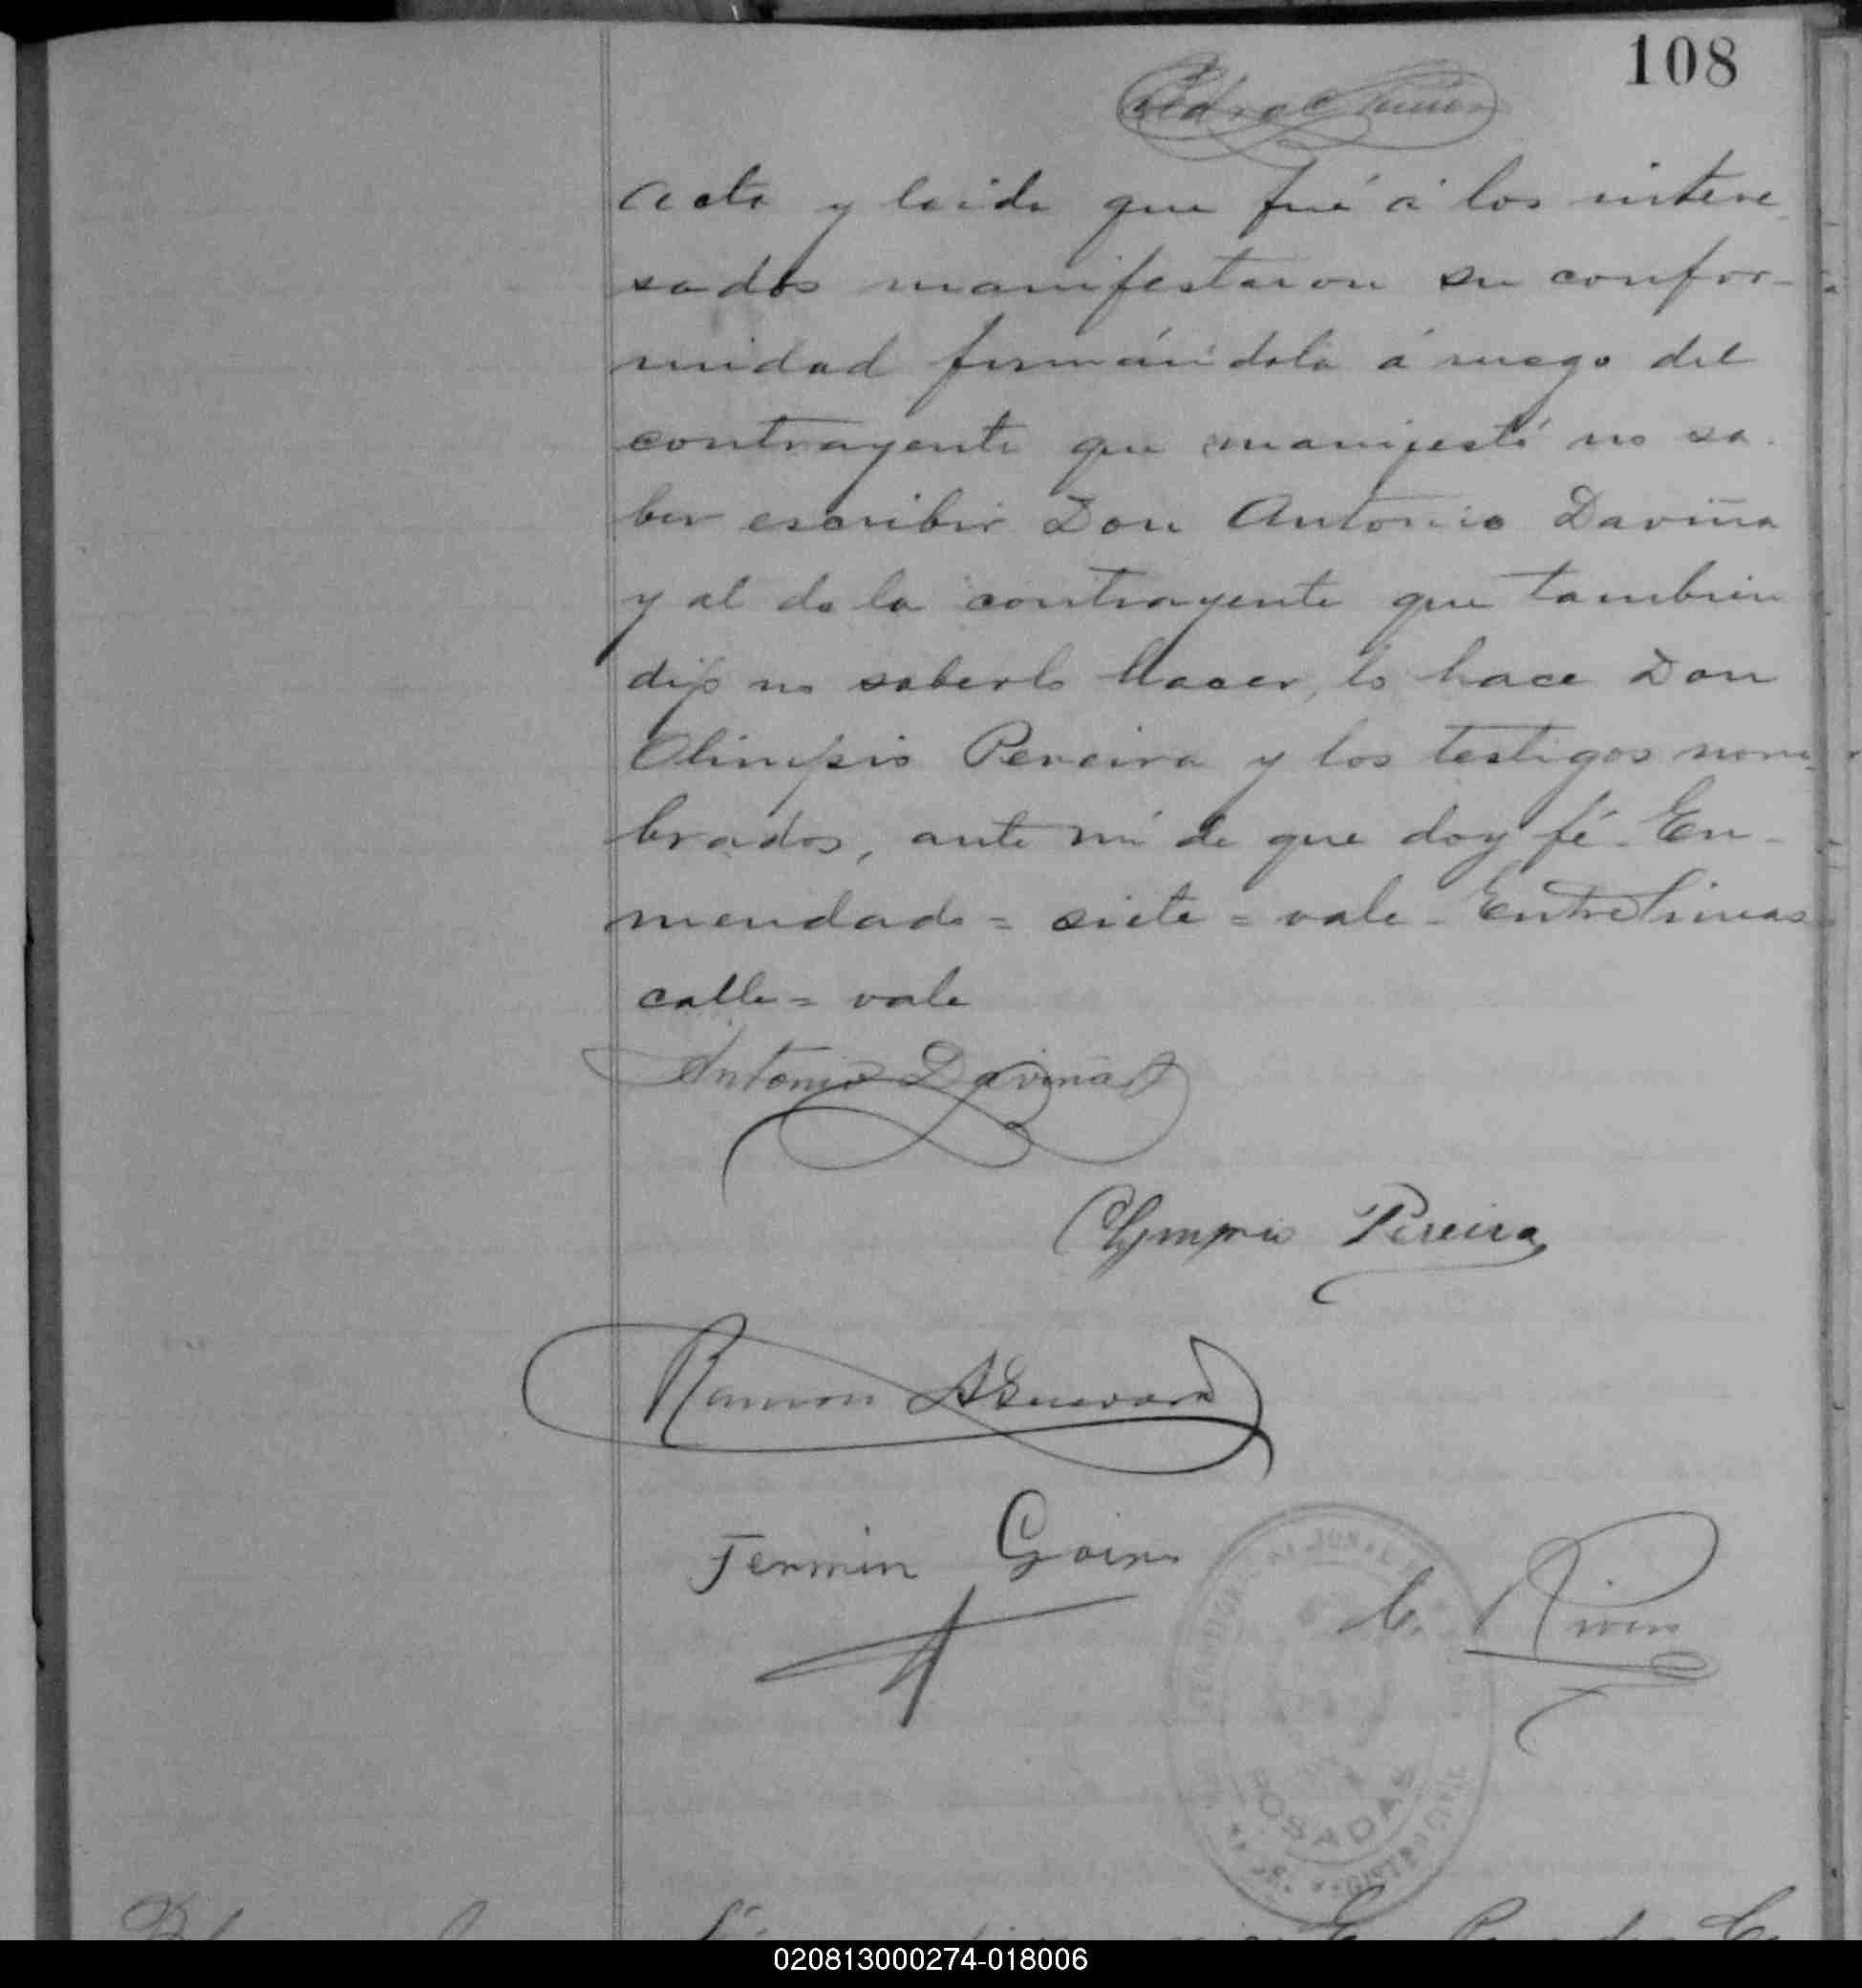 108
acta y leida que fué á los intere
sados manifestaron su confor-
midad firmándola á ruego del
contrayente que manifestó no sa-
ber escribir Don Antonio Daviña
y al de la contrayente que tambien
dijo no saberlo hacer, lo hace Don
Olimpio Pereira y los testigos nom-
brados, ante mí de que doy fé. En-
mendado = siete = vale - Entrelineas
calle = vale
Antonio Daviña
Olympio Pereira
Ramon
Fermin
POSADAS
020813000274-018006